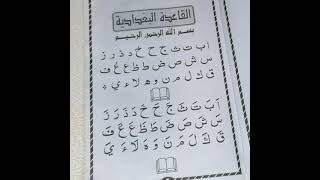 القاعدة البغدادية
بسم الله الرحمن الرحيم
ا ب ت ث ج ح خ د ذ ر ز
س ش ص ض ط ظ ع غ ف
ق ك ل م ن و ه لا ء ي
اَ بَ تَ ثَ جَ حَ خَ دَ ذَ رَ زَ
سَ شَ صَ ضَ طَ ظَ عَ غَ فَ
قَ كَ لَ مَ نَ وَ هَ لَا ءَ يَ